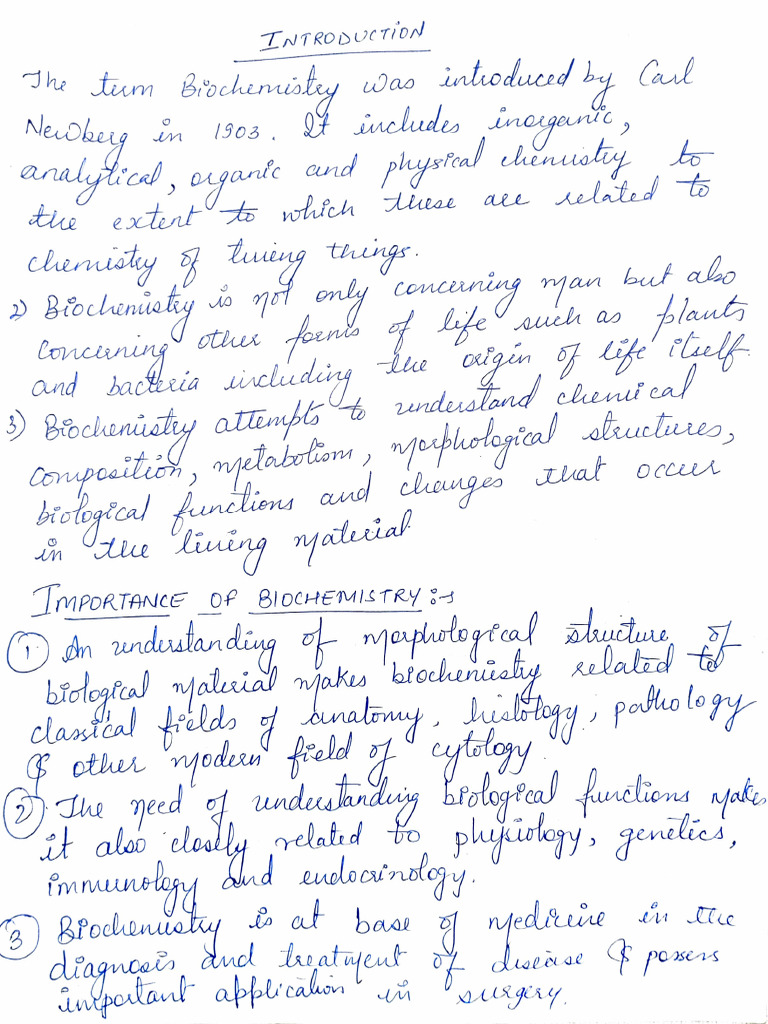 INTRODUCTION
The term Biochemistry was introduced by Carl
Newberg in 1903. It includes inorganic,
analytical, organic and physical chemistry to
the extent to which these are related to
chemistry of living things.
2) Biochemistry is not only concerning man but also
concerning other forms of life such as plants
and bacteria including the origin of life itself.
3) Biochemistry attempts to understand chemical
composition, metabolism, morphological structures,
biological functions and changes that occur
in the living material.
IMPORTANCE OF BIOCHEMISTRY:-
1. An understanding of morphological structure of
biological material makes biochemistry related to
classical fields of anatomy, histology, pathology
& other modern field of cytology.
2. The need of understanding biological functions makes
it also closely related to physiology, genetics,
immunology and endocrinology.
3 Biochemistry is at base of medicine in the
diagnosis and treatment of disease & possess
important application in surgery.